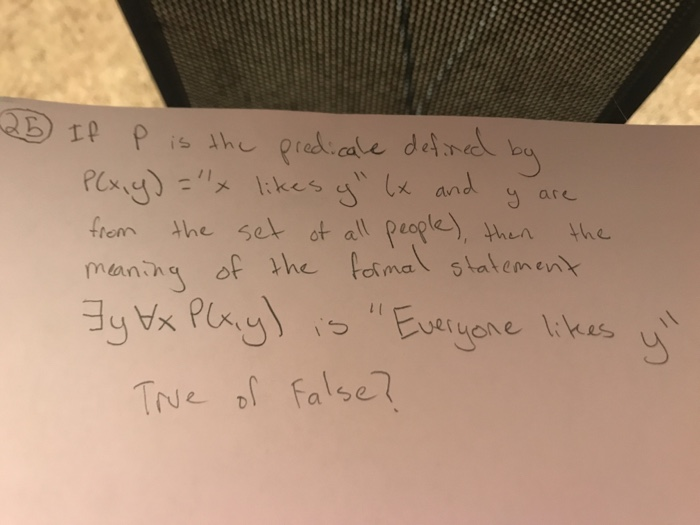 25 If P is the predicate defined by
P(x,y) = "x likes y" (x and y are
from the set of all people), then the
meaning of the formal statement
∃y ∀x P(x,y) is "Everyone likes y"
True of False?